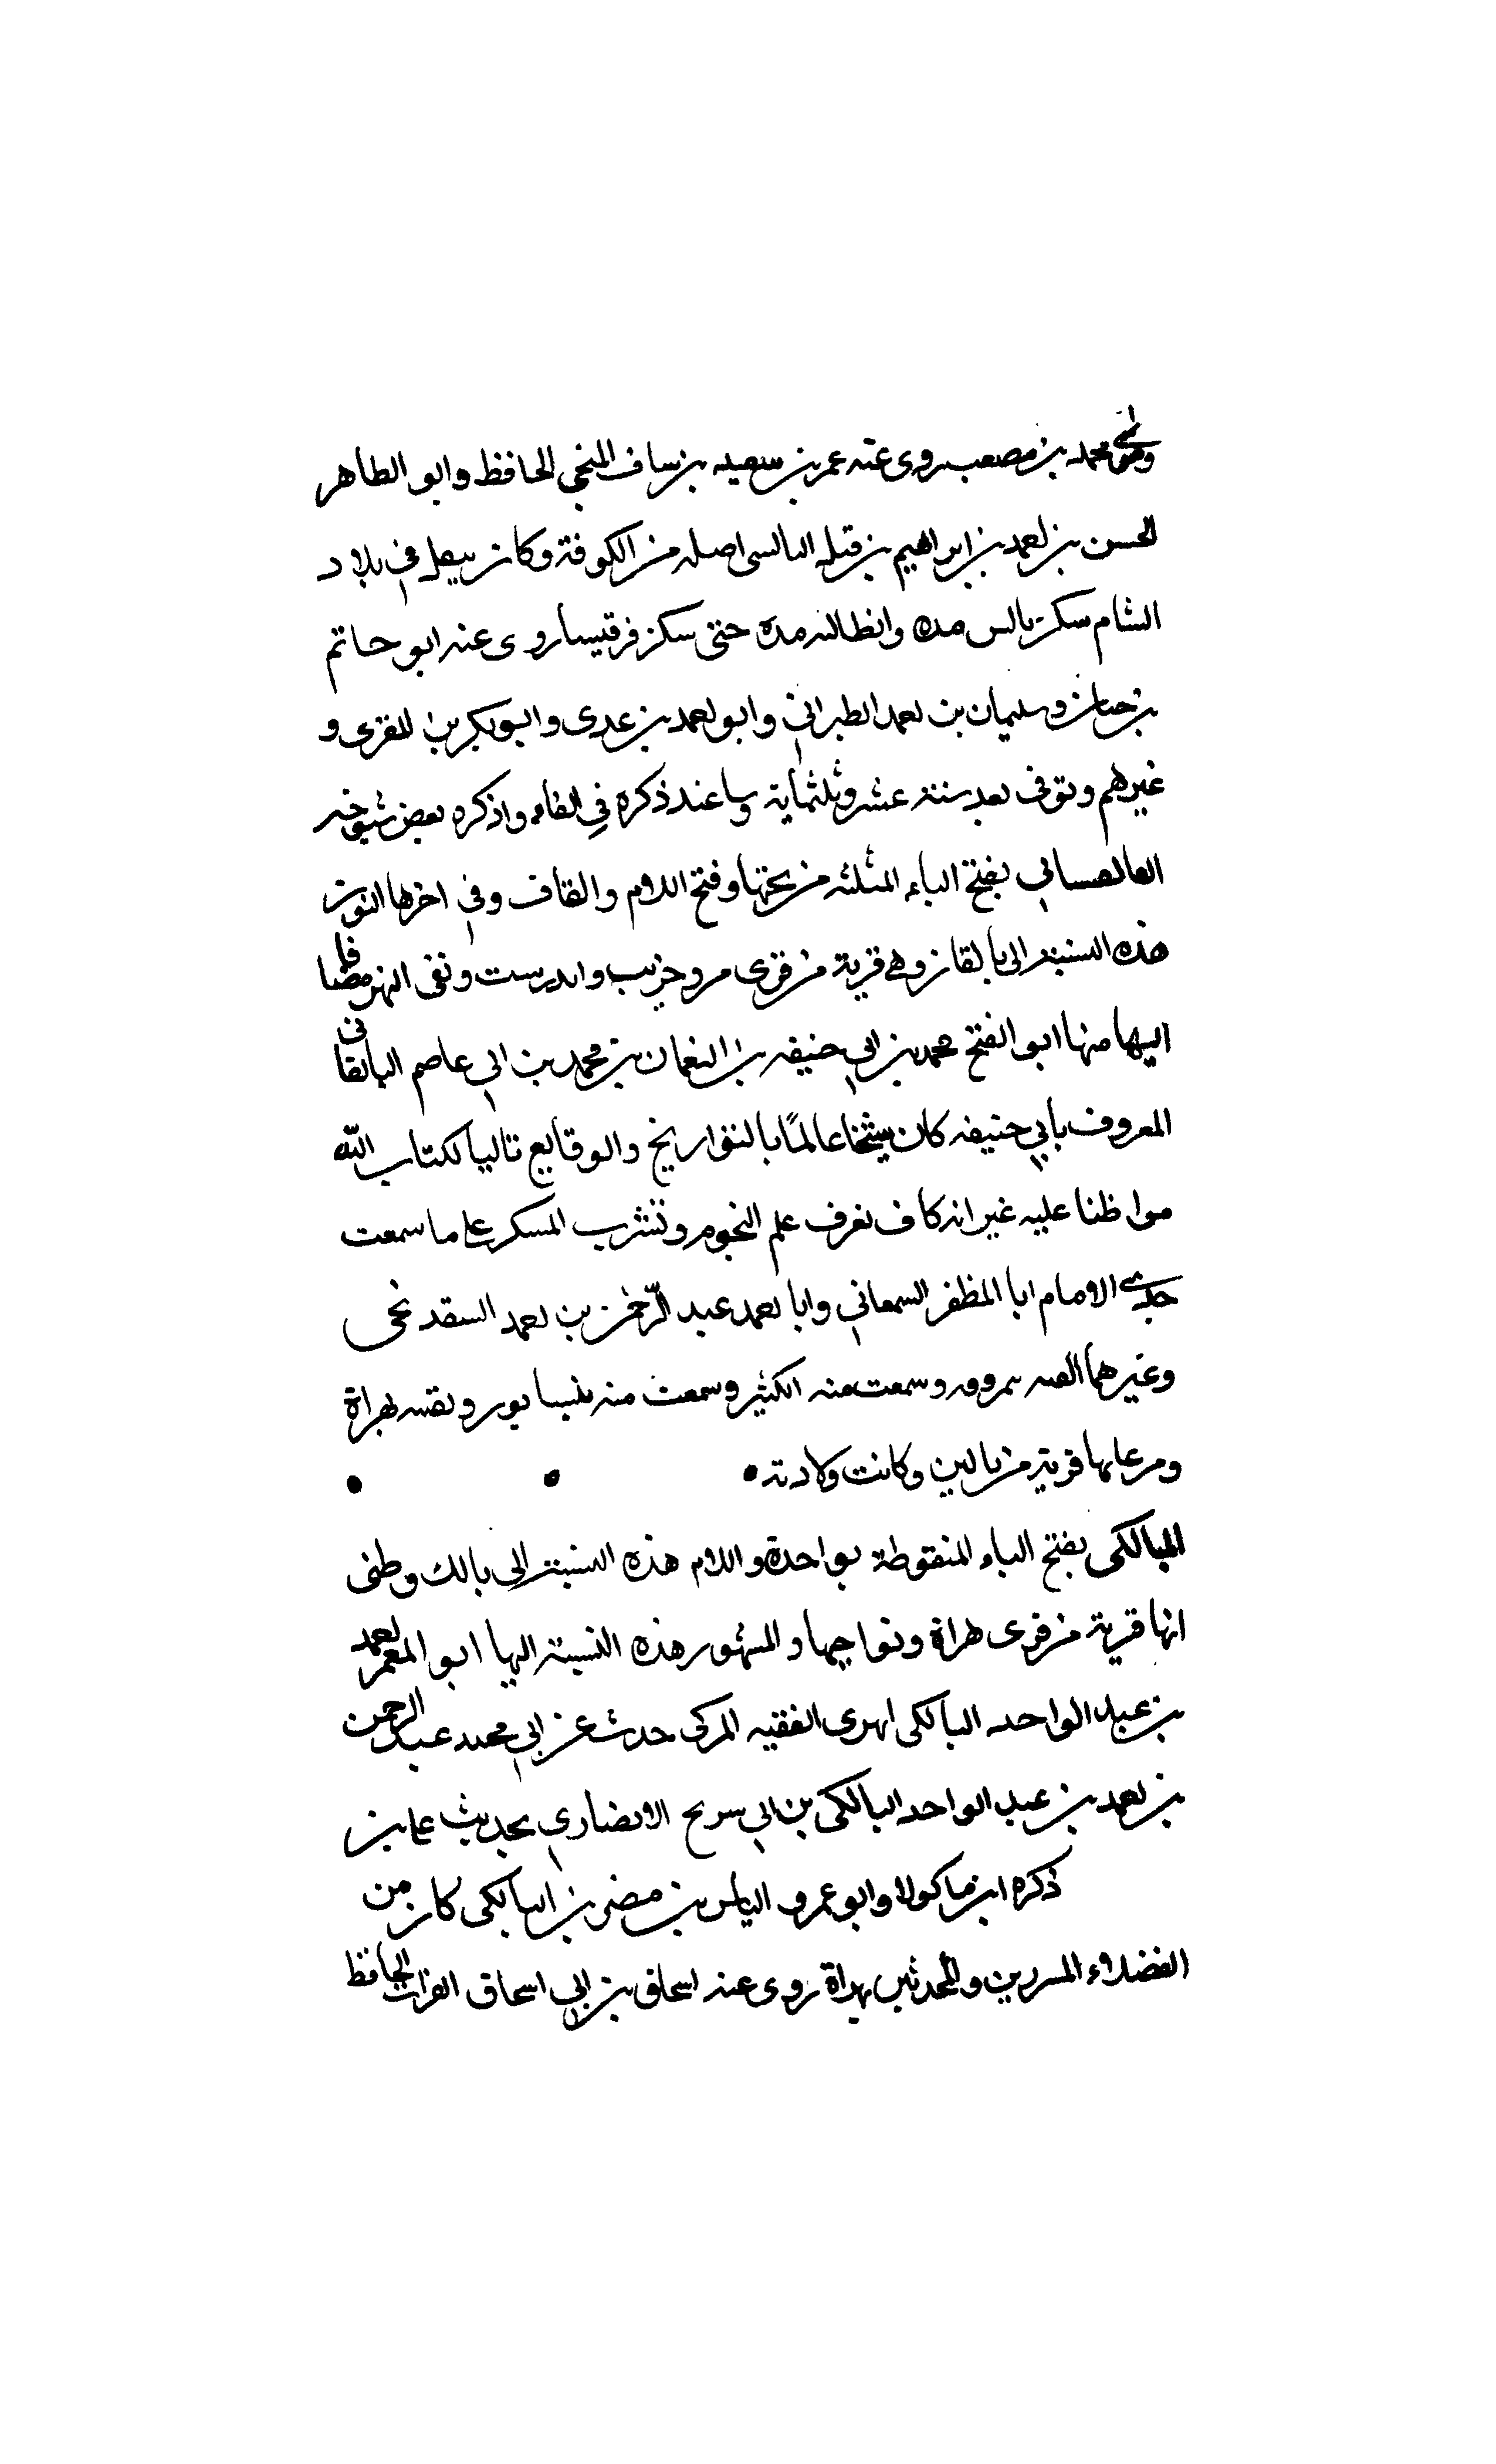 محمد بن مصعب روى عنه عمر بن سعيد بن سناف المنبجي الحافظ وابو الطاهر
الحسن بن احمد بن ابراهيم بن فيل البالسى اصله من الكوفة وكان ينتقل في بلاد
الشام سكن بالس مدة وانطاكيه مدة حتى سكن قرقيسا روى عنه ابو حاتم
بن حبان وسليمان بن احمد الطبراني وابو احمد بن عدى وابو بكر بن المقرى و
غيرهم وتوفى بعد سنة عشر وثلثماية وساعند ذكره في الفاء واذكره بعض شيوخه
بفتح الباء المثلثه من تحتها وفتح اللام والقاف وفي اخرها النون
هذه النسبة الى بالقان وهى قرية من قرى مرو خربت واندرست وبقى النهر مضافا
اليها منها ابو الفتح محمد بن ابي حنيفه بن النعمان بن محمد بن ابي عاصم البالقانى
المعروف بابي حنيفه كان شيخا عالمًا بالتواريخ والوقايع تاليا لكتاب الله
مواظبا عليه غير انه كان يعرف علم النجوم وتشرب المسكر على ما سمعت
جدى الامام ابا المظفر السمعاني وابا احمد عبد الرحمن بن احمد السقدنجى
وغيرهما بمرو وسمعت منه الكثير وسمعت منه بنيسابور وبقيه بهراة
قرية من بالين وكانت ولادته
البالكى بفتح الباء المنقوطة بواحدة واللام هذه النسبة الى بالك وظنى
انها قرية من قرى هراة ونواحيها والمشهور هذه النسبة اليها ابو المعمر احمد
بن عبد الواحد البالكى الهروى الفقيه المزكى حدث عن ابي محمد عبد الرحمن
بن احمد بن عبد الواحد البالكى بن ابي سريح الانصاري بحديث على بن
ذكره ابن ماكولا وابو عمرو الياس بن مضر بن البالكى كان من
الفضلاء والمحدثين بهراة روى عنه اسحاق بن ابي اسحاق القراب الحافظ